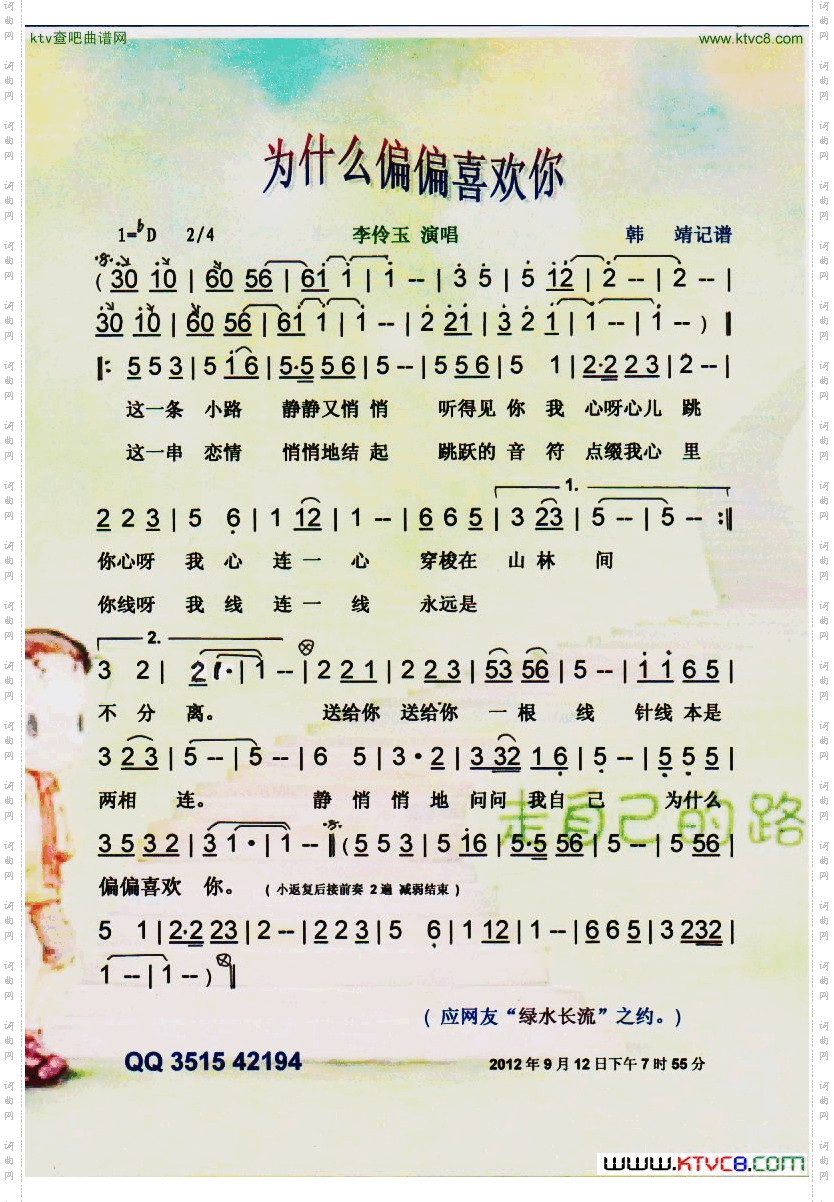 ktv查吧曲谱网 www.ktvc8.com
为什么偏偏喜欢你
1=♭D 2/4 李伶玉 演唱 韩 靖记谱
( 30 10 | 60 56 | 61 1 | 1 -- | 3 5 | 5 12 | 2 -- | 2 -- |
30 10 | 60 56 | 61 1 | 1 -- | 2 21 | 3 2 1 | 1 -- | 1 -- ) ‖
‖: 5 5 3 | 5 1 6 | 5·5 5 6 | 5 -- | 5 5 6 | 5 1 | 2·2 2 3 | 2 -- |
这一条 小路 静静又悄 悄 听得见 你 我 心呀心儿 跳
这一串 恋情 悄悄地结 起 跳跃的 音 符 点缀我心 里
1.
2 2 3 | 5 6 | 1 12 | 1 -- | 6 6 5 | 3 23 | 5 -- | 5 -- :‖
你心呀 我 心 连 一 心 穿梭在 山 林 间
你线呀 我 线 连 一 线 永远是
2.
3 2 | 2 1· | 1 -- | 2 2 1 | 2 2 3 | 53 56 | 5 -- | 1 1 6 5 |
不 分 离。 送给你 送给你 一 根 线 针线 本是
3 2 3 | 5 -- | 5 -- | 6 5 | 3 · 2 | 3 32 1 6 | 5 -- | 5 5 5 |
两相 连。 静 悄 悄 地 问问 我自 己 为什么
走自己的路
3 5 3 2 | 3 1 · | 1 -- ‖ ( 5 5 3 | 5 16 | 5·5 56 | 5 -- | 5 56 |
偏偏喜欢 你。 ( 小返复后接前奏 2 遍 减弱结束 )
5 1 | 2·2 23 | 2 -- | 2 2 3 | 5 6 | 1 12 | 1 -- | 6 6 5 | 3 232 |
1 -- | 1 -- ) ‖
( 应网友“绿水长流”之约。)
QQ 3515 42194 2012 年 9 月 12 日下午 7 时 55 分
www.KTVC8.com